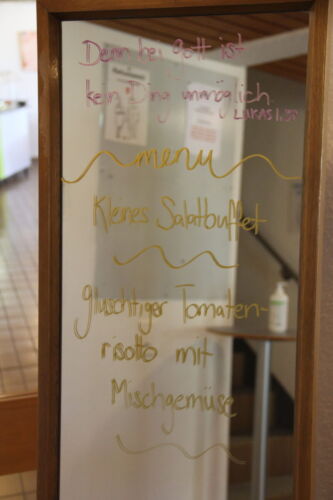 Denn bei Gott ist
kein Ding unmöglich.
LUKAS 1,37
menu
Kleines Salatbuffet
gluschtiger Tomaten-
risotto mit
Mischgemüse